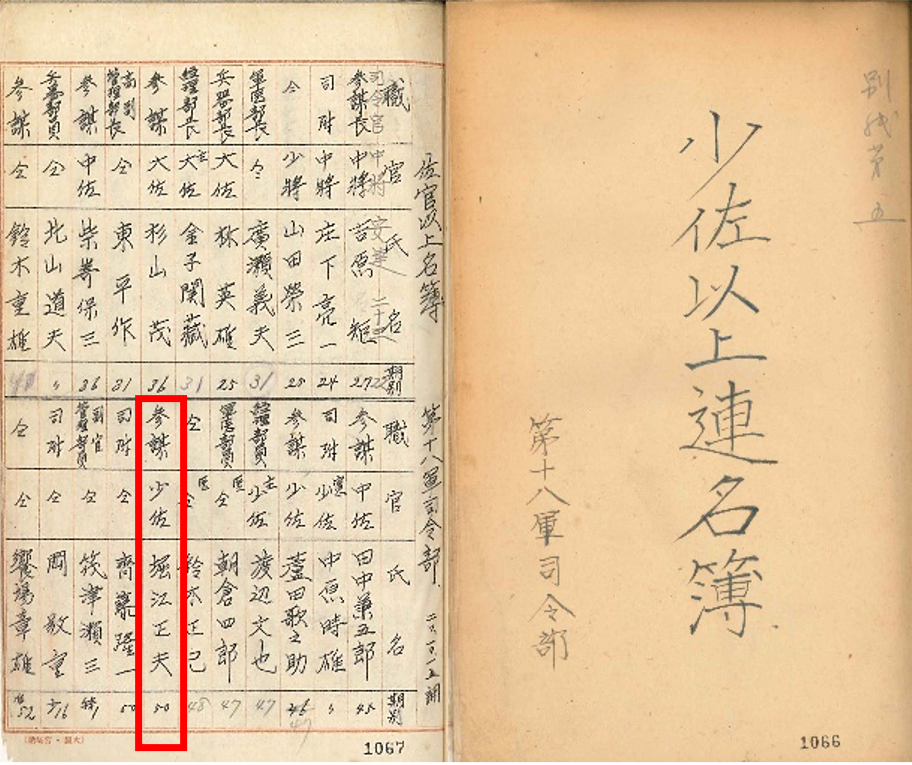 別紙第五
少佐以上連名簿
第十八軍司令部
1066
佐官以上名簿 第十八軍司令部
職 官 氏名 期別
司令官 中將 安達二十三 22
參謀長 中將 吉原矩 27
司附 中將 庄下亮一 24
仝 少將 山田榮三 25
軍医部長 仝 廣瀬義夫 31
兵器部長 大佐 林英雄 25
經理部長 主大佐 金子関藏 31
參謀 大佐 杉山茂 36
高副管理部長 仝 東平作 31
參謀 中佐 柴崎保三 36
兵器部員 仝 北山道夫 〃
參謀 仝 鈴木重雄 40
職 官 氏名 期別
參謀 中佐 田中兼五郎 45
司附 憲少佐 中原時雄 〃
參謀 少佐 田歌之助 46 47
經理部員 主少佐 渡辺文也 47
軍医部員 医仝 朝倉四郎 47
仝 医仝 鈴木正己 48
參謀 少佐 堀江正夫 50
司附 仝 齊藤隆一 50
副官管理部員 仝 筑津瀬三 特1
司附 仝 岡敬重 16
仝 仝 饗場章雄 52
1067